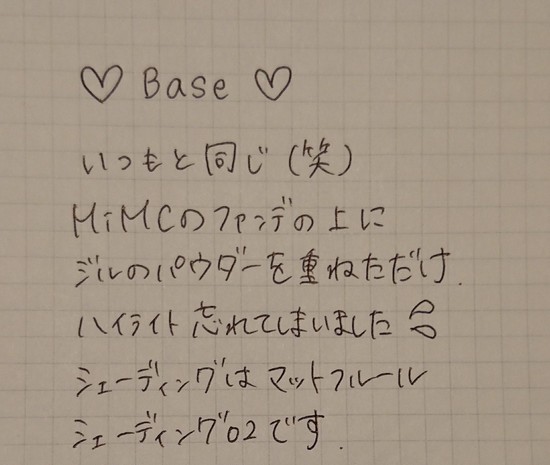 ♡ Base ♡
いつもと同じ(笑)
MiMCのファンデの上に
ジルのパウダーを重ねただけ.
ハイライト忘れてしまいました
シェーディングはマットフルール
シェーディング02です.